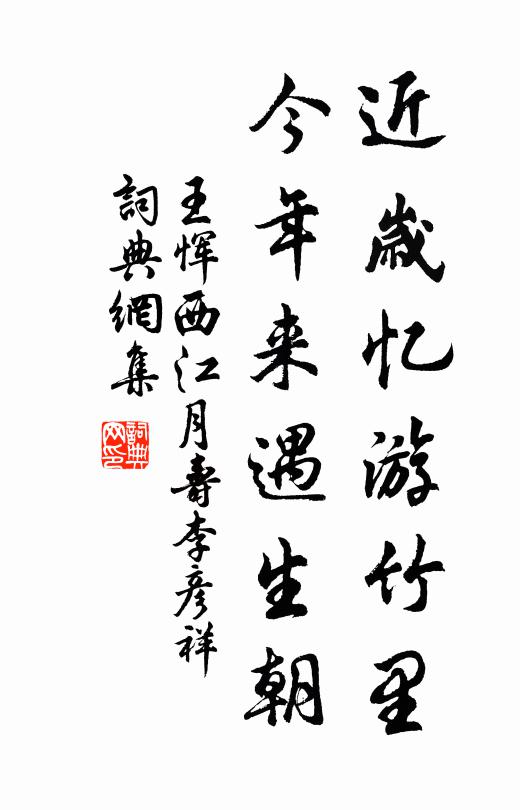 近歲忆游竹里
今年来遇生朝
王恽西江月壽李彦祥
詞典網集
詞典
网印